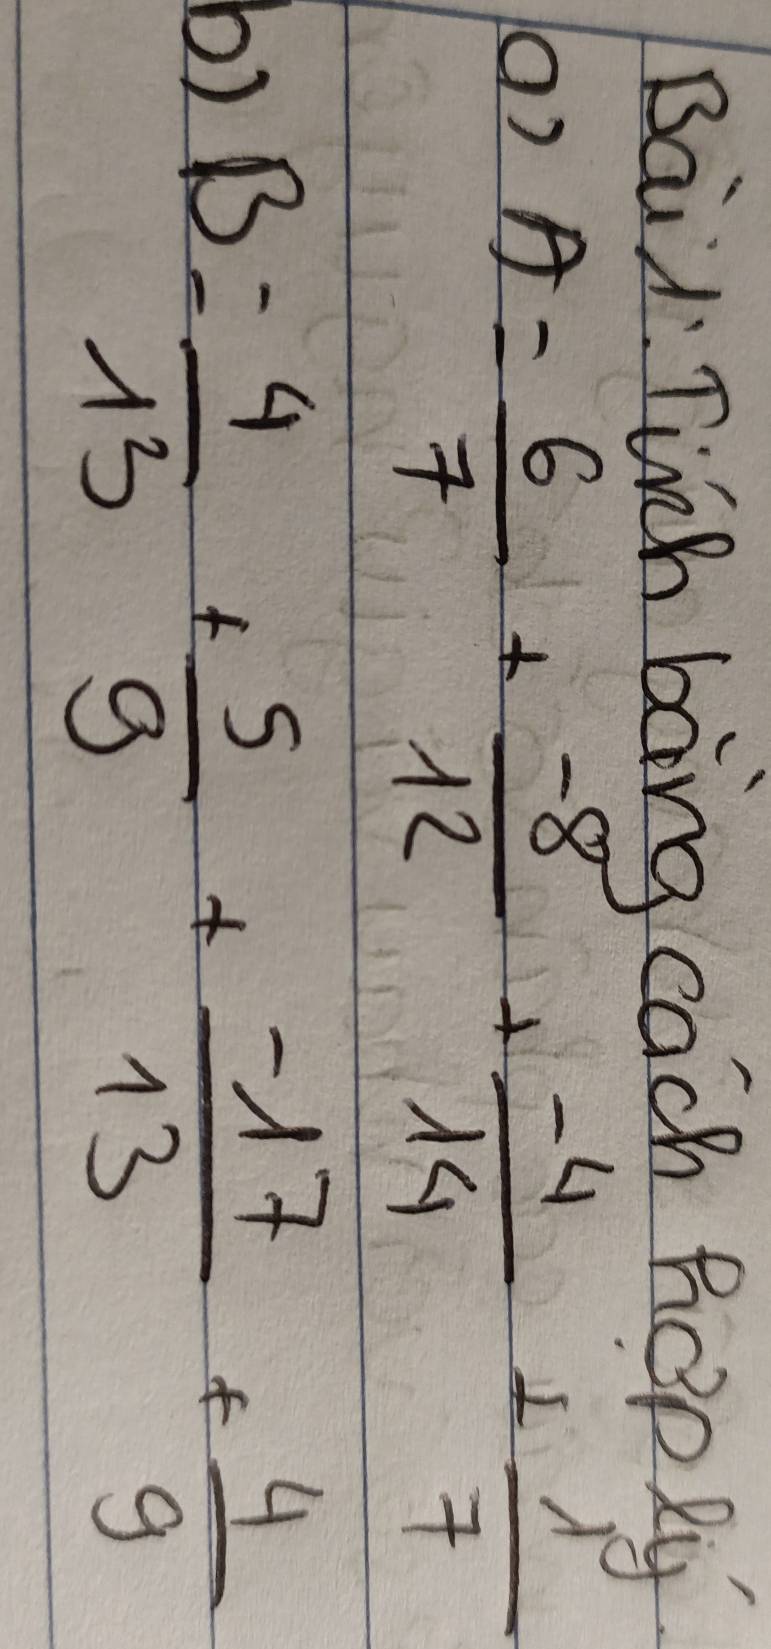 Bài 1: Tính bằng cách hợp lý.
a) A = 6/7 + -8/12 + -4/14 + 1/7
b) B = 4/13 + 5/9 + -17/13 + 4/9